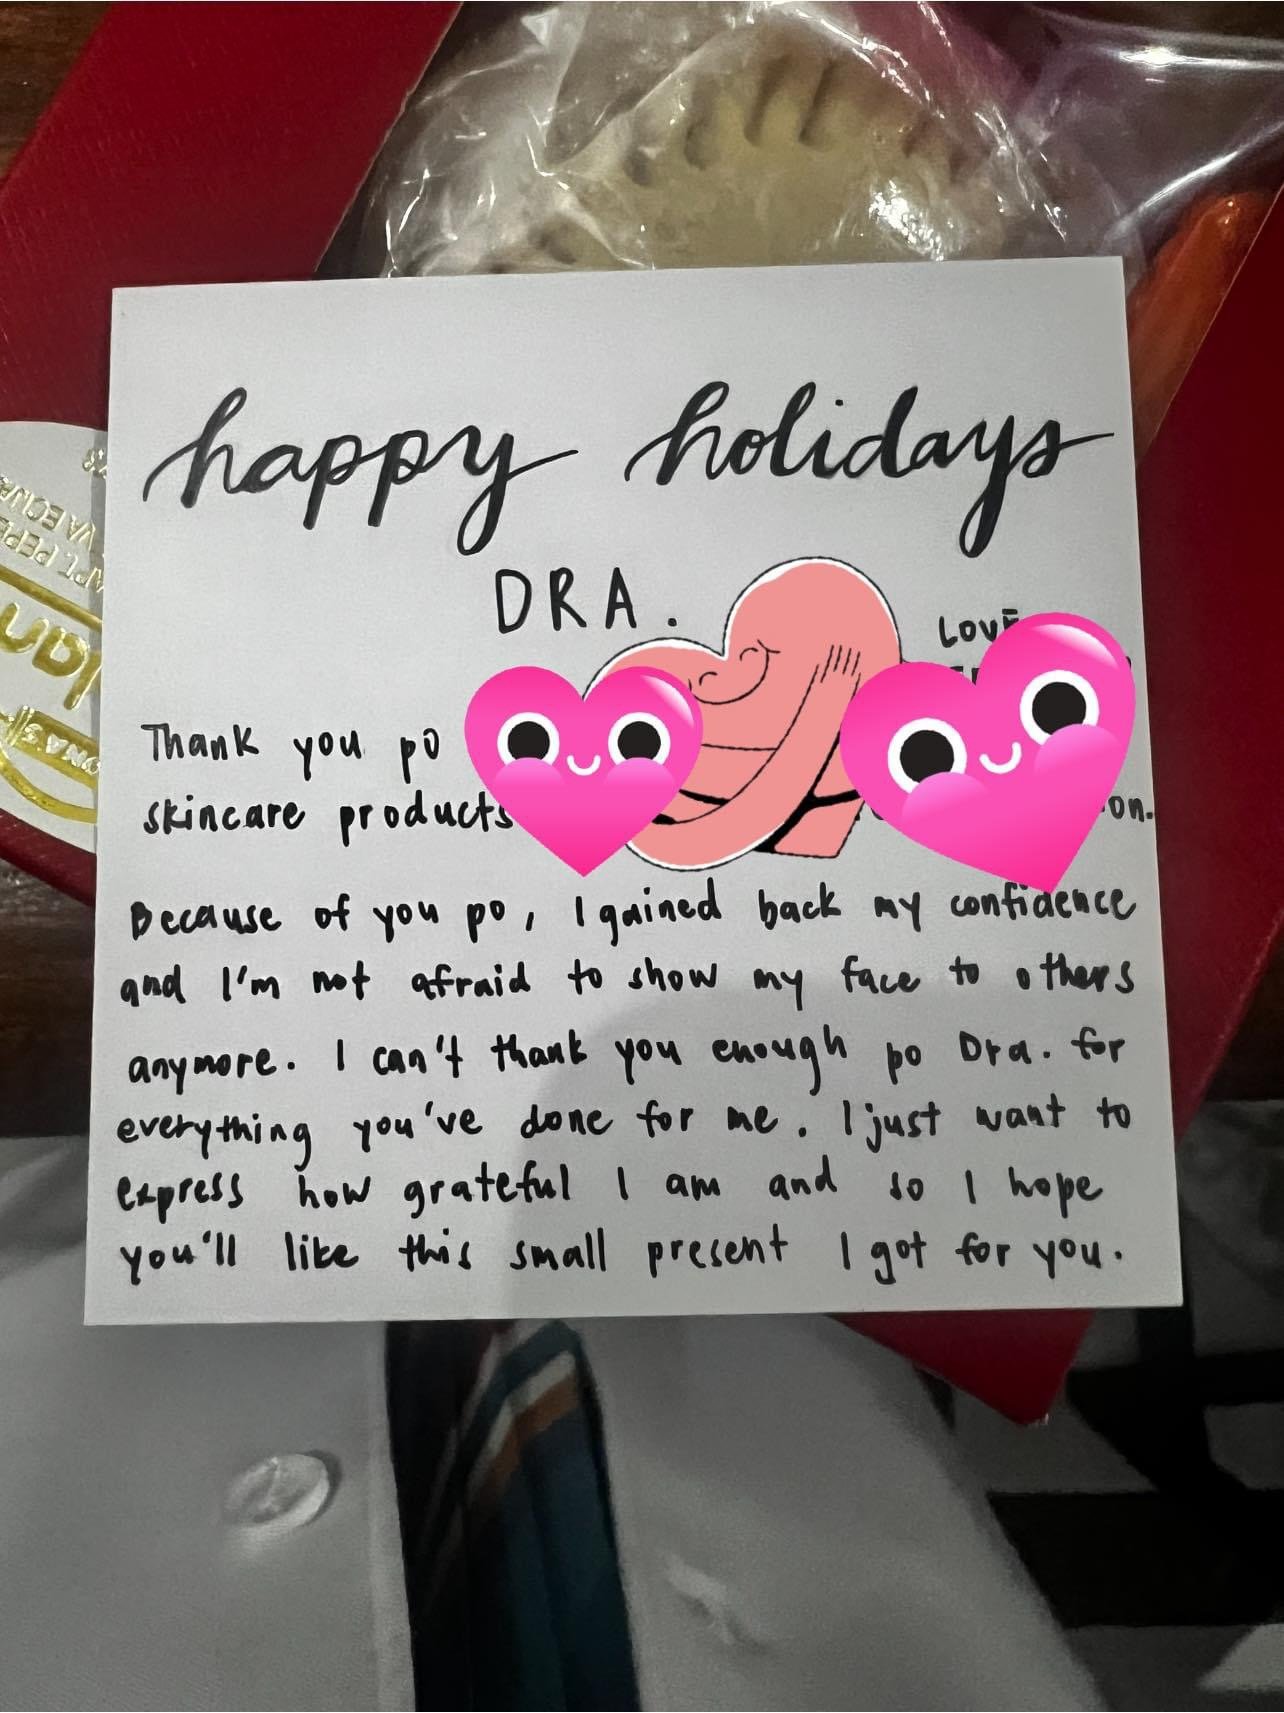 happy holidays
DRA.
LOVE
Thank you po
skincare products
on.
Because of you po, I gained back my confidence
and I'm not afraid to show my face to others
anymore. I can't thank you enough po Dra. for
everything you've done for me. I just want to
express how grateful I am and so I hope
you'll like this small present I got for you.